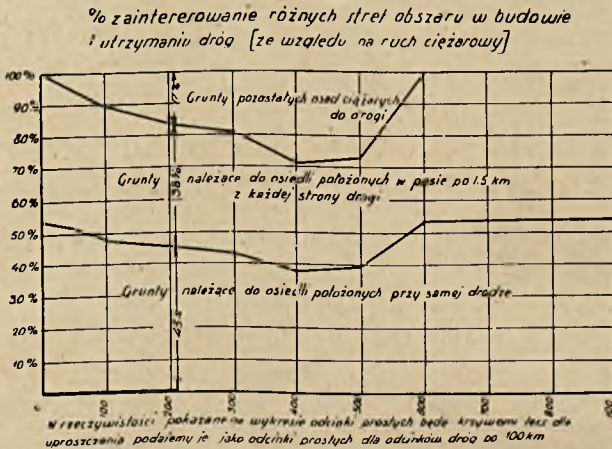 % zaintererowanie różnych stref obszaru w budowie
i utrzymaniu dróg [ze względu na ruch ciężarowy]
100%
90%
80%
70%
60%
50%
40%
30%
20%
10%
Grunty pozostałych osad ciążących
do drogi
17%
Grunty należące do osiedli położonych w pasie po 1.5 km
z każdej strony drogi
38%
Grunty należące do osiedli położonych przy samej drodze
45%
0 100 200 300 400 500 600 700 800
W rzeczywistości pokazane na wykresie odcinki prostych będą krzywemi lecz dla
uproszczenia podajemy je jako odcinki prostych dla odcinków dróg po 100 km